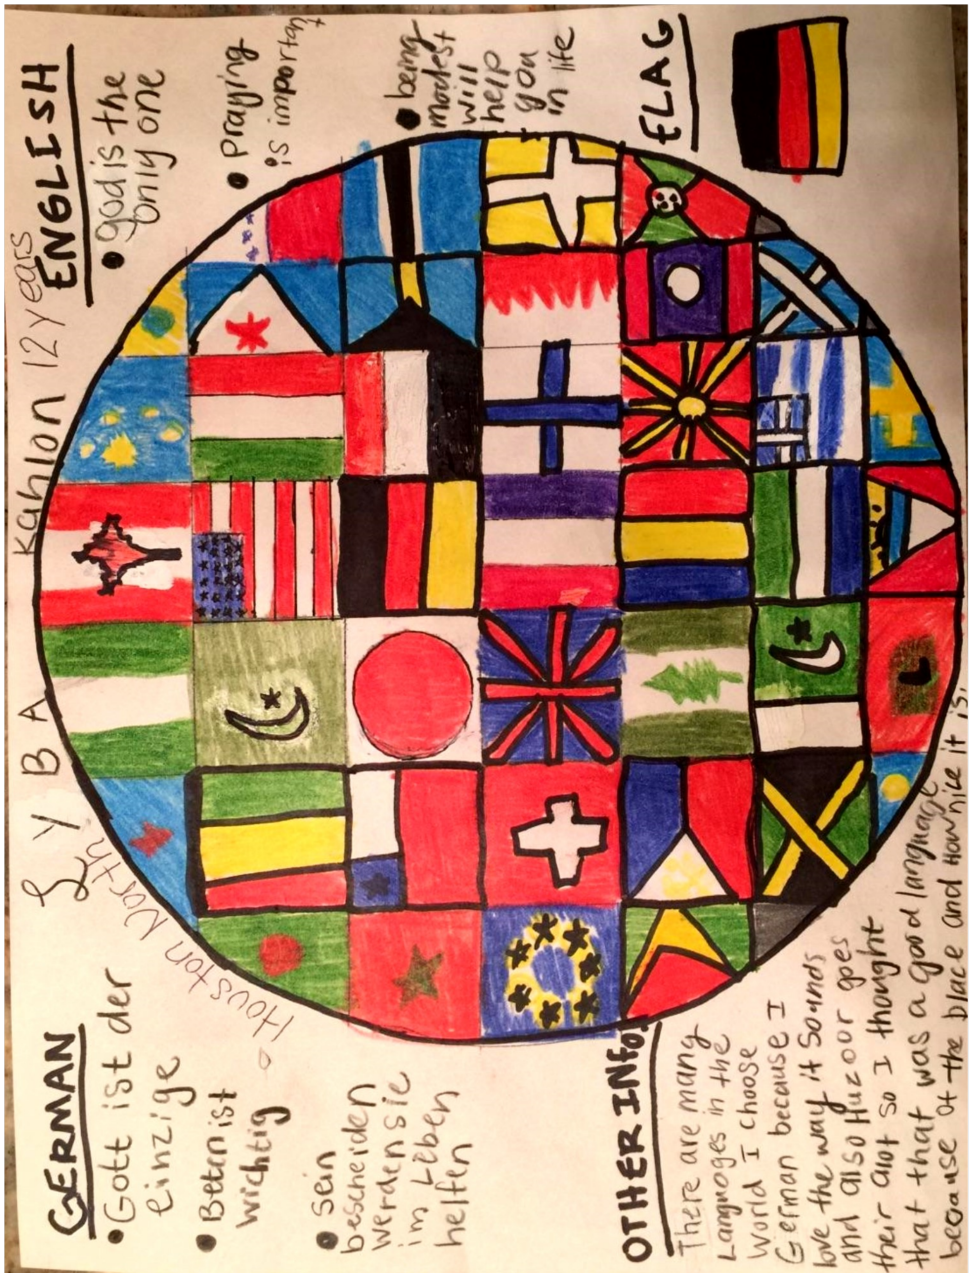 LYBA Kahlon 12 years
Houston North
GERMAN
• Gott ist der
einzige
• Beten ist
wichtig
• sein
bescheiden
werden sie
im Leben
helfen
ENGLISH
• god is the
only one
• praying
is important
• being
modest
will
help
you
in life
OTHER INFO:
There are many
Languages in the
World I choose
German because I
love the way it sounds
and also Huzoor goes
their alot so I thought
that that was a good language
because of the place and how nice it is.
FLAG